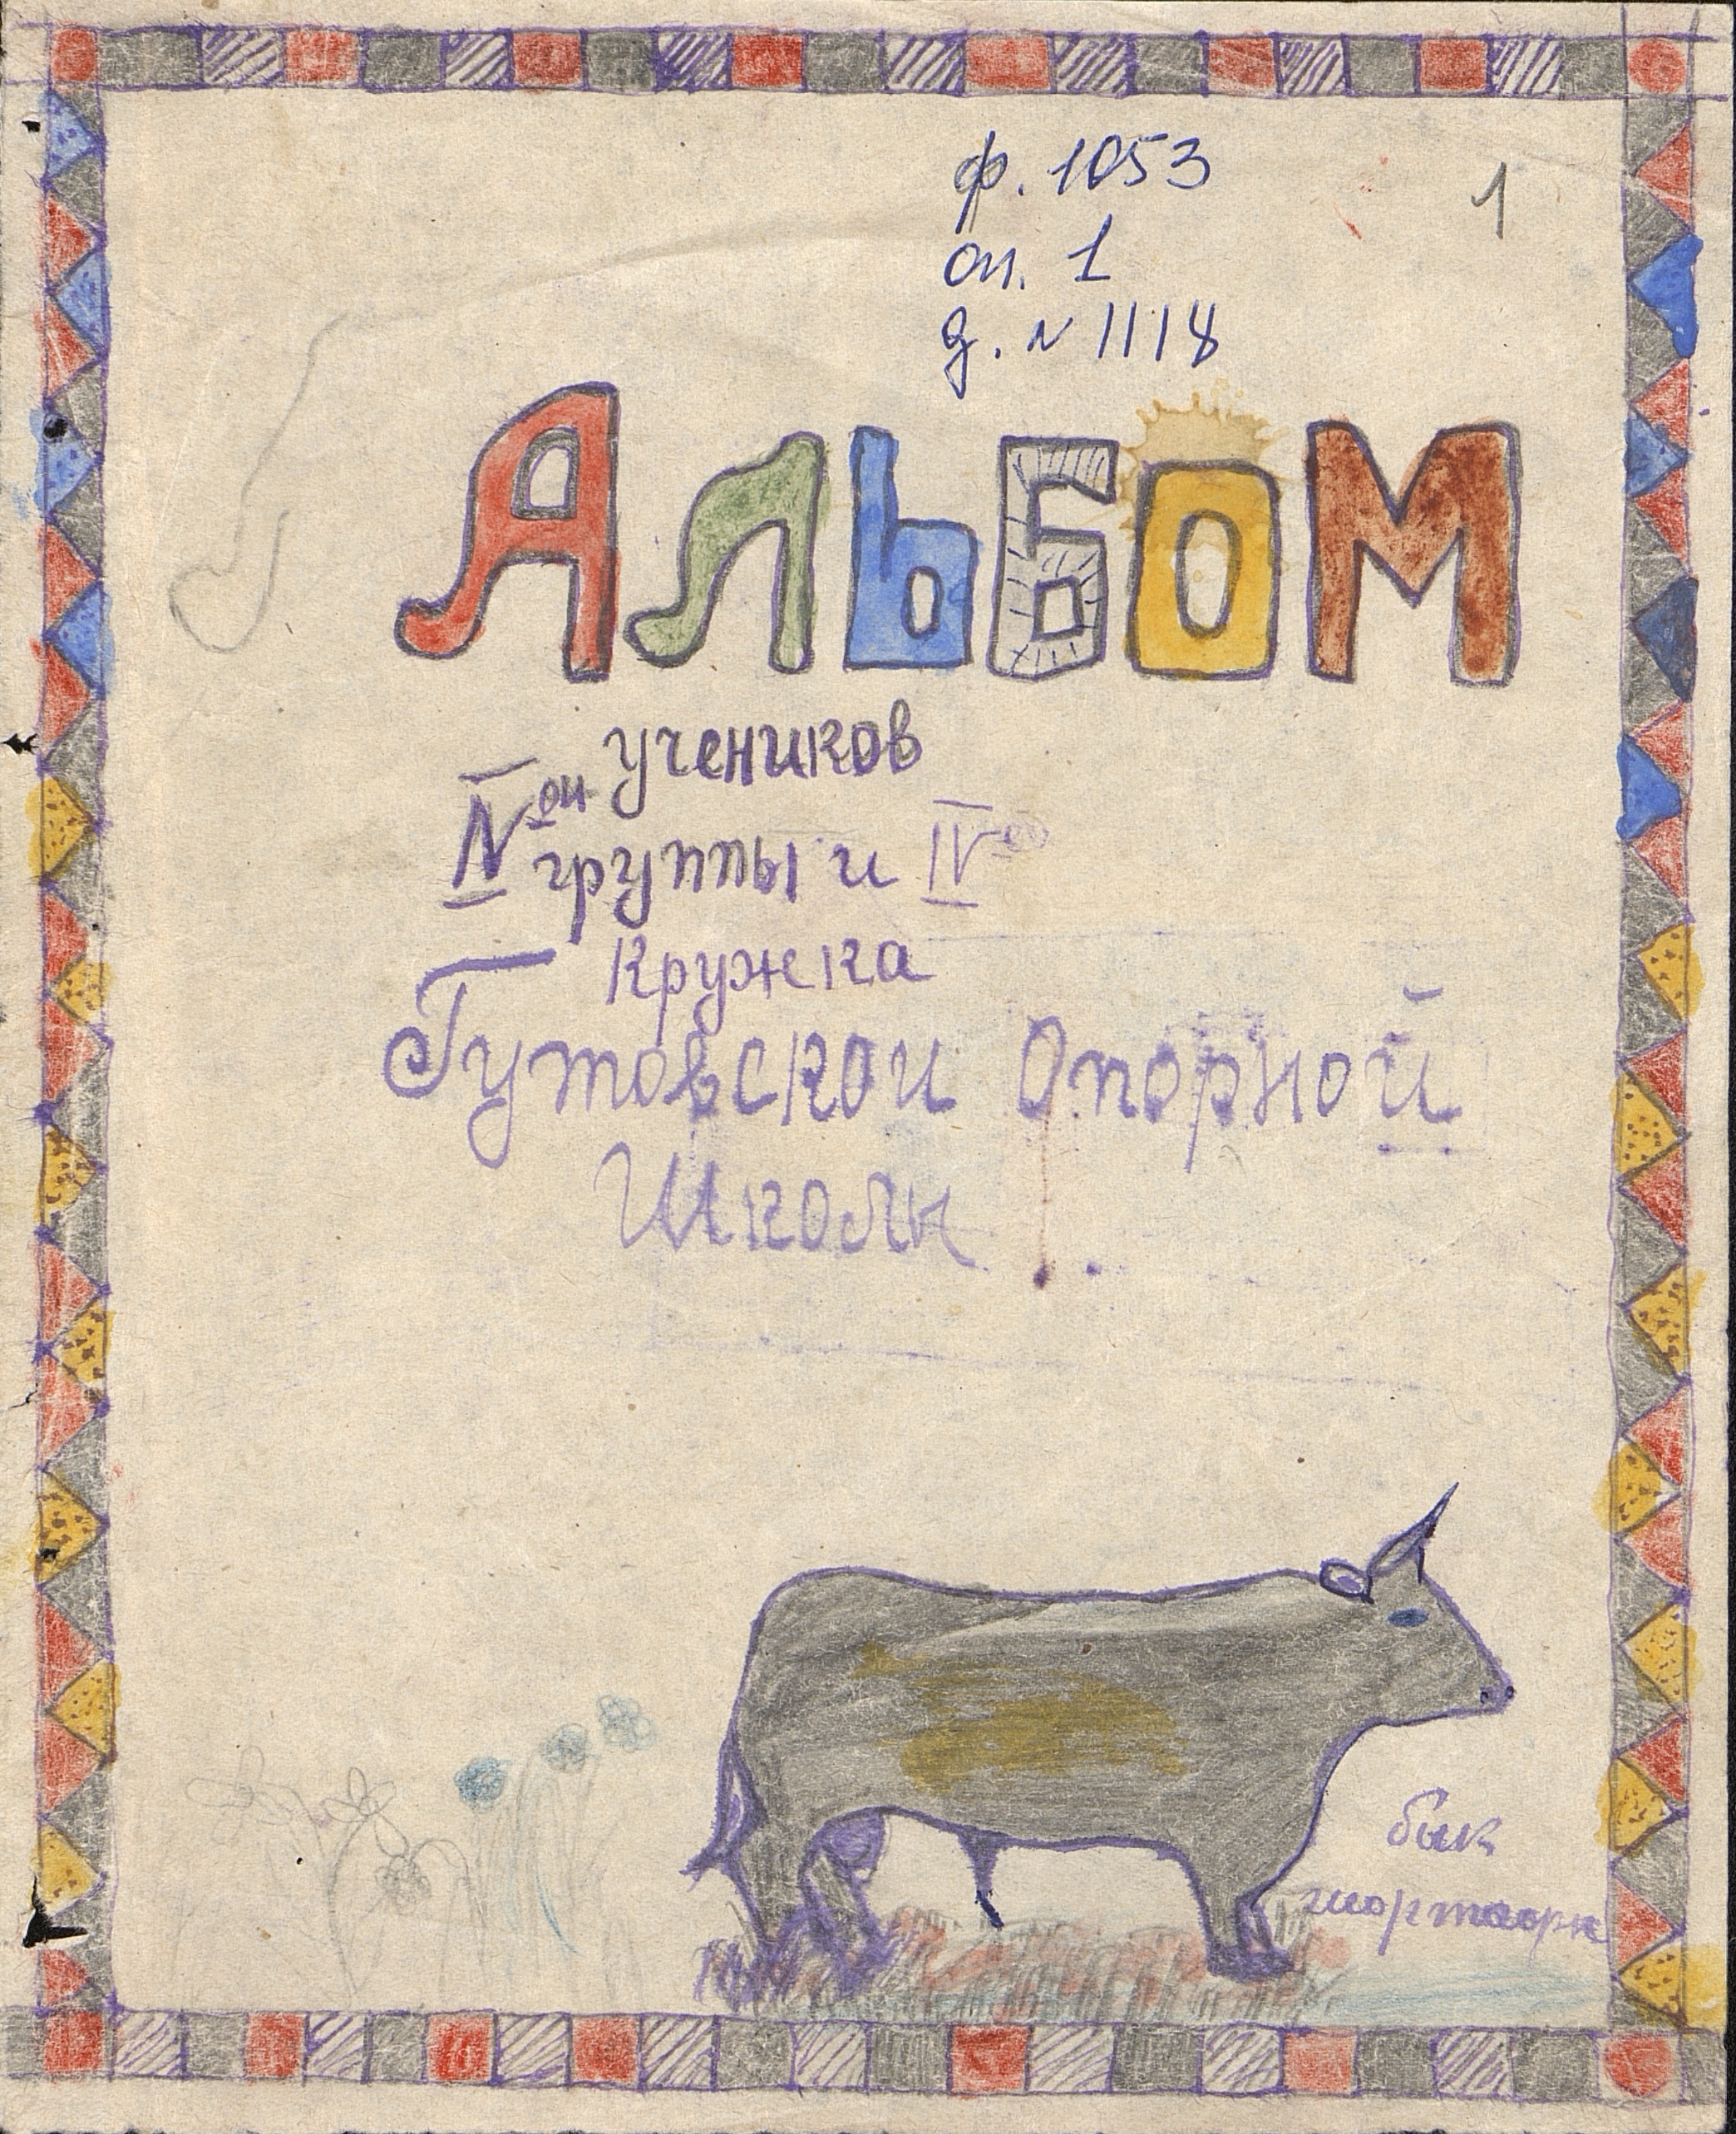 ф. 1053
1
оп. 1
д. № 1118
АЛЬБОМ
учеников
IVой группы и IVго
кружка
Гутовской Опорной
Школы
бык
шортгорн